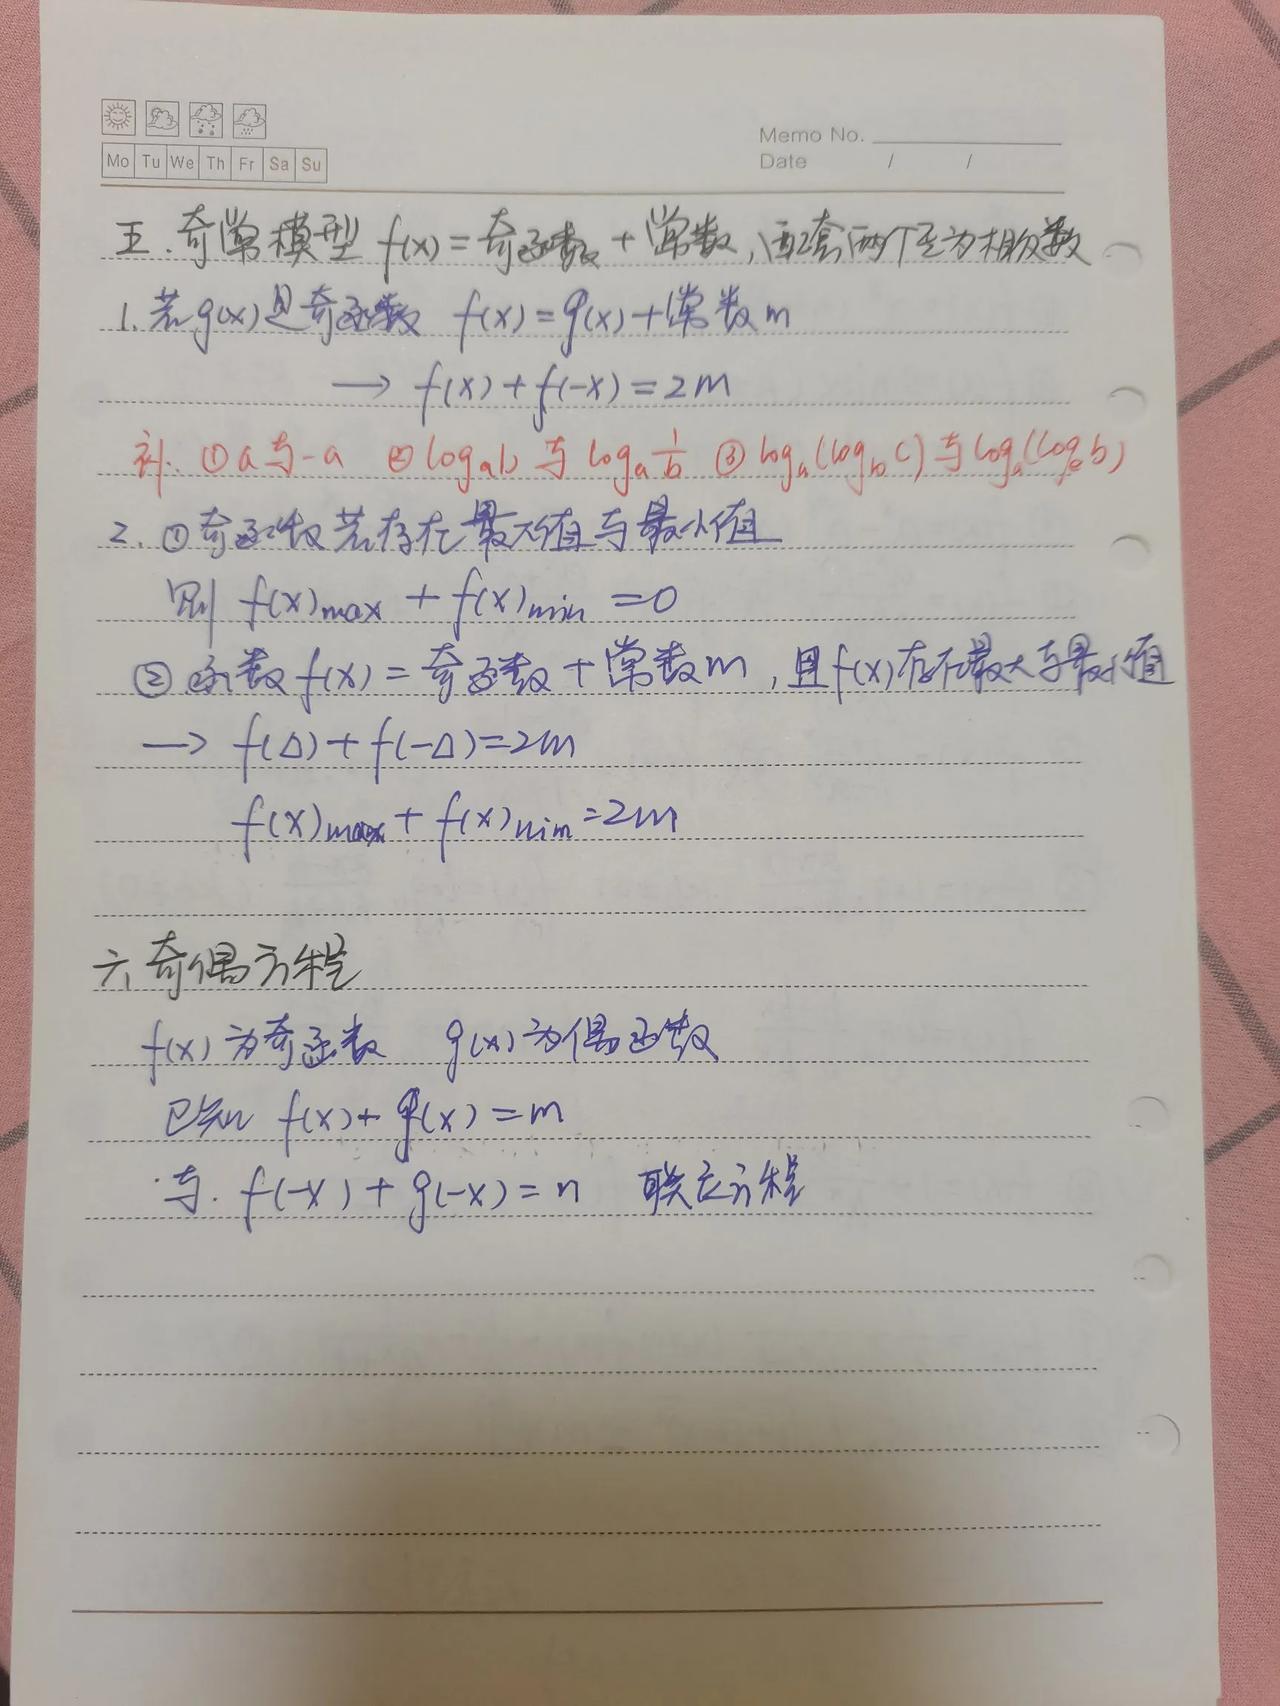 Memo No.
Mo Tu We Th Fr Sa Su
Date / /
五.奇常模型 f(x)=奇函数+常数,配套两个互为相反数
1.若g(x)是奇函数 f(x)=g(x)+常数m
→ f(x)+f(-x)=2m
补: ①a与-a ②logₐb与logₐ1/b ③logₐ(log_b c)与logₐ(log_c b)
2.①奇函数若存在最大值与最小值
则 f(x)max+f(x)min=0
②函数f(x)=奇函数+常数m,且f(x)存在最大与最小值
→ f(△)+f(-△)=2m
f(x)max+f(x)min=2m
六、奇偶方程
f(x)为奇函数 g(x)为偶函数
已知 f(x)+g(x)=m
与. f(-x)+g(-x)=n 联立方程